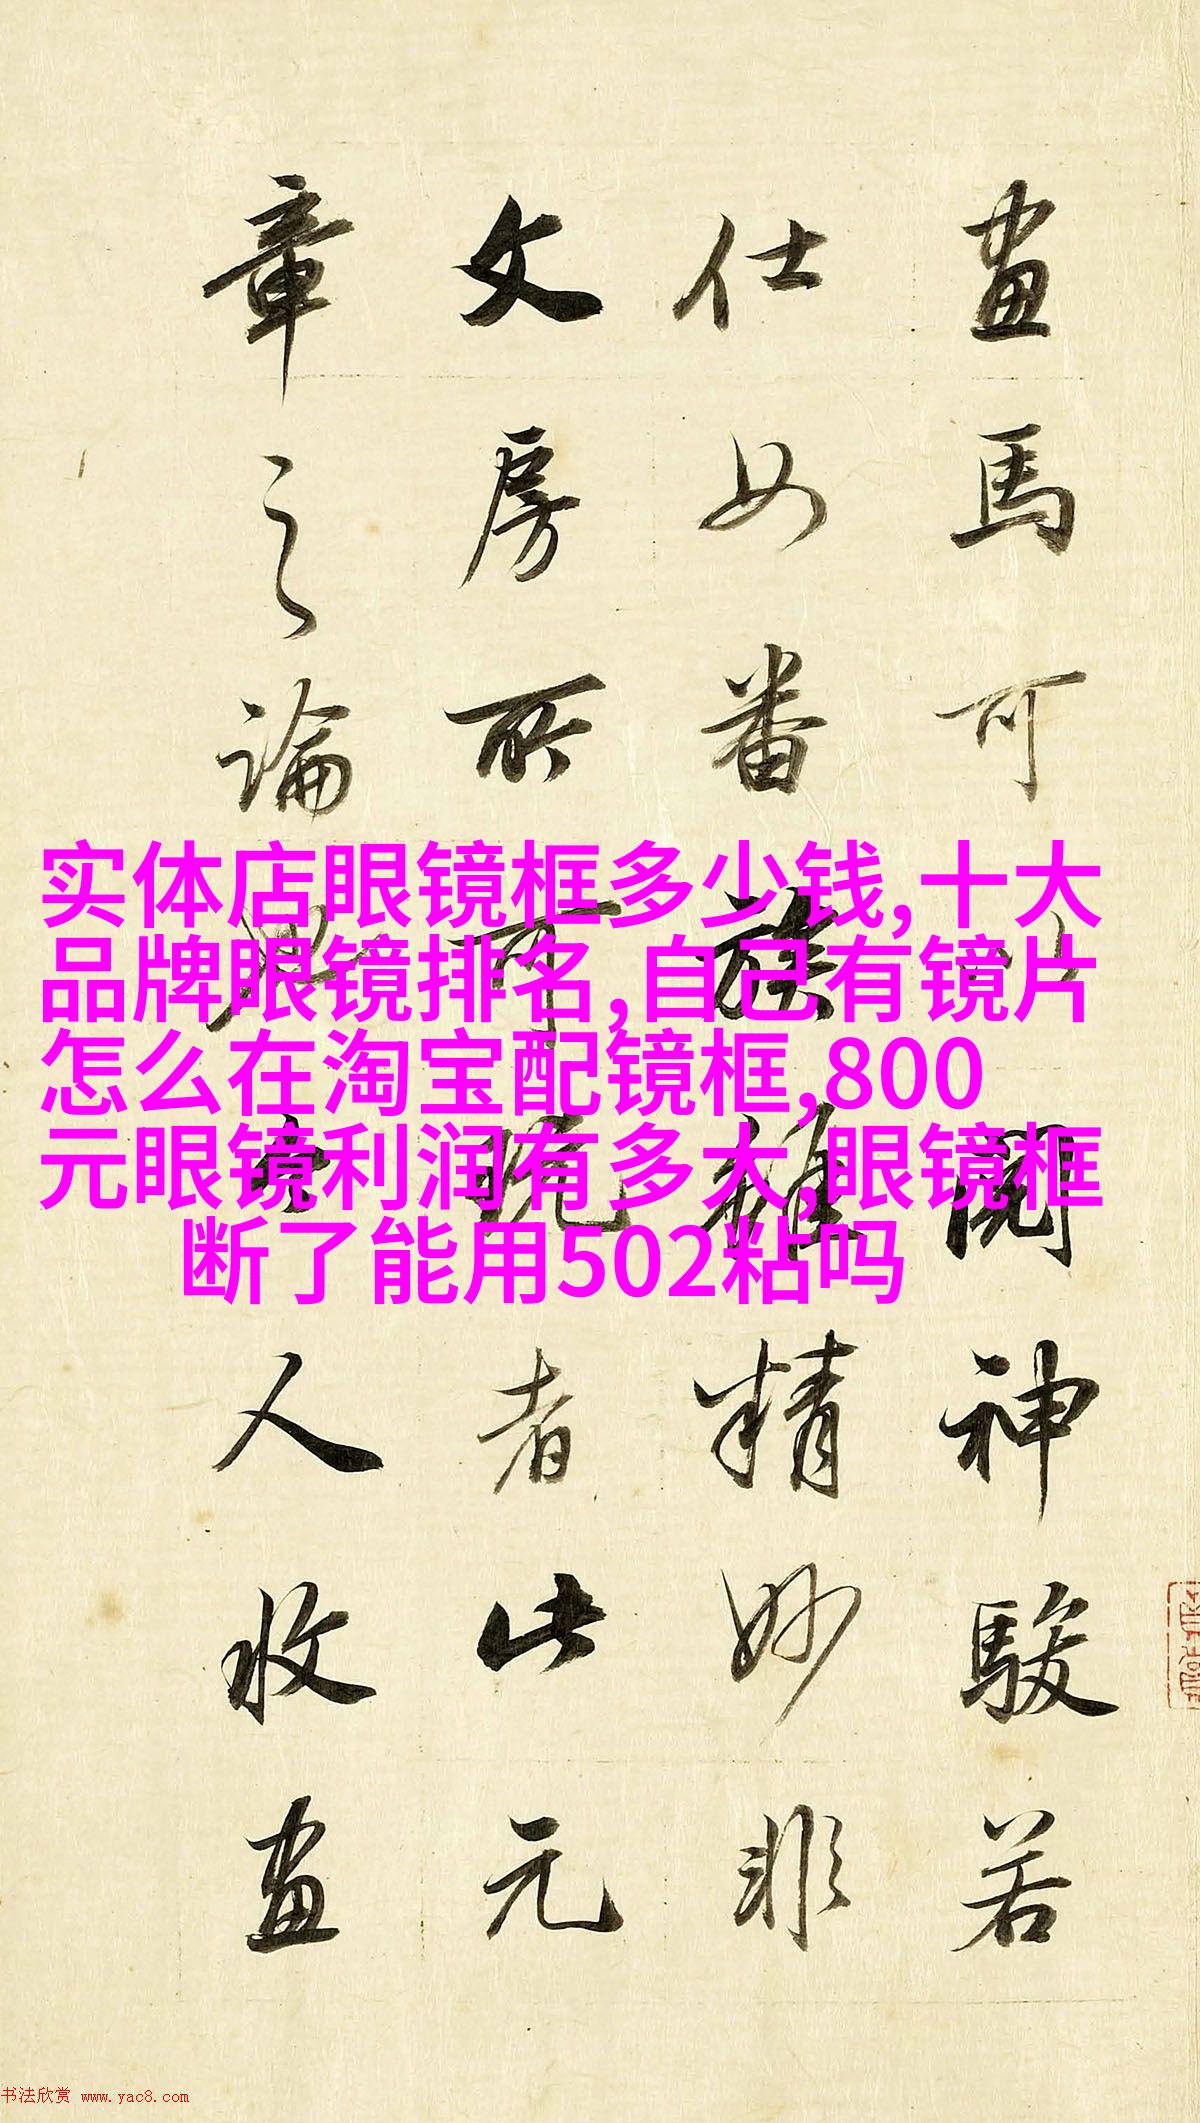 畫馬可閱神駿若
仕女番族雖精妙非
文房所可玩者此元
章之論人收畫
实体店眼镜框多少钱,十大
品牌眼镜排名,自己有镜片
怎么在淘宝配镜框,800
元眼镜利润有多大,眼镜框
断了能用502粘吗
书法欣赏 www.yac8.com